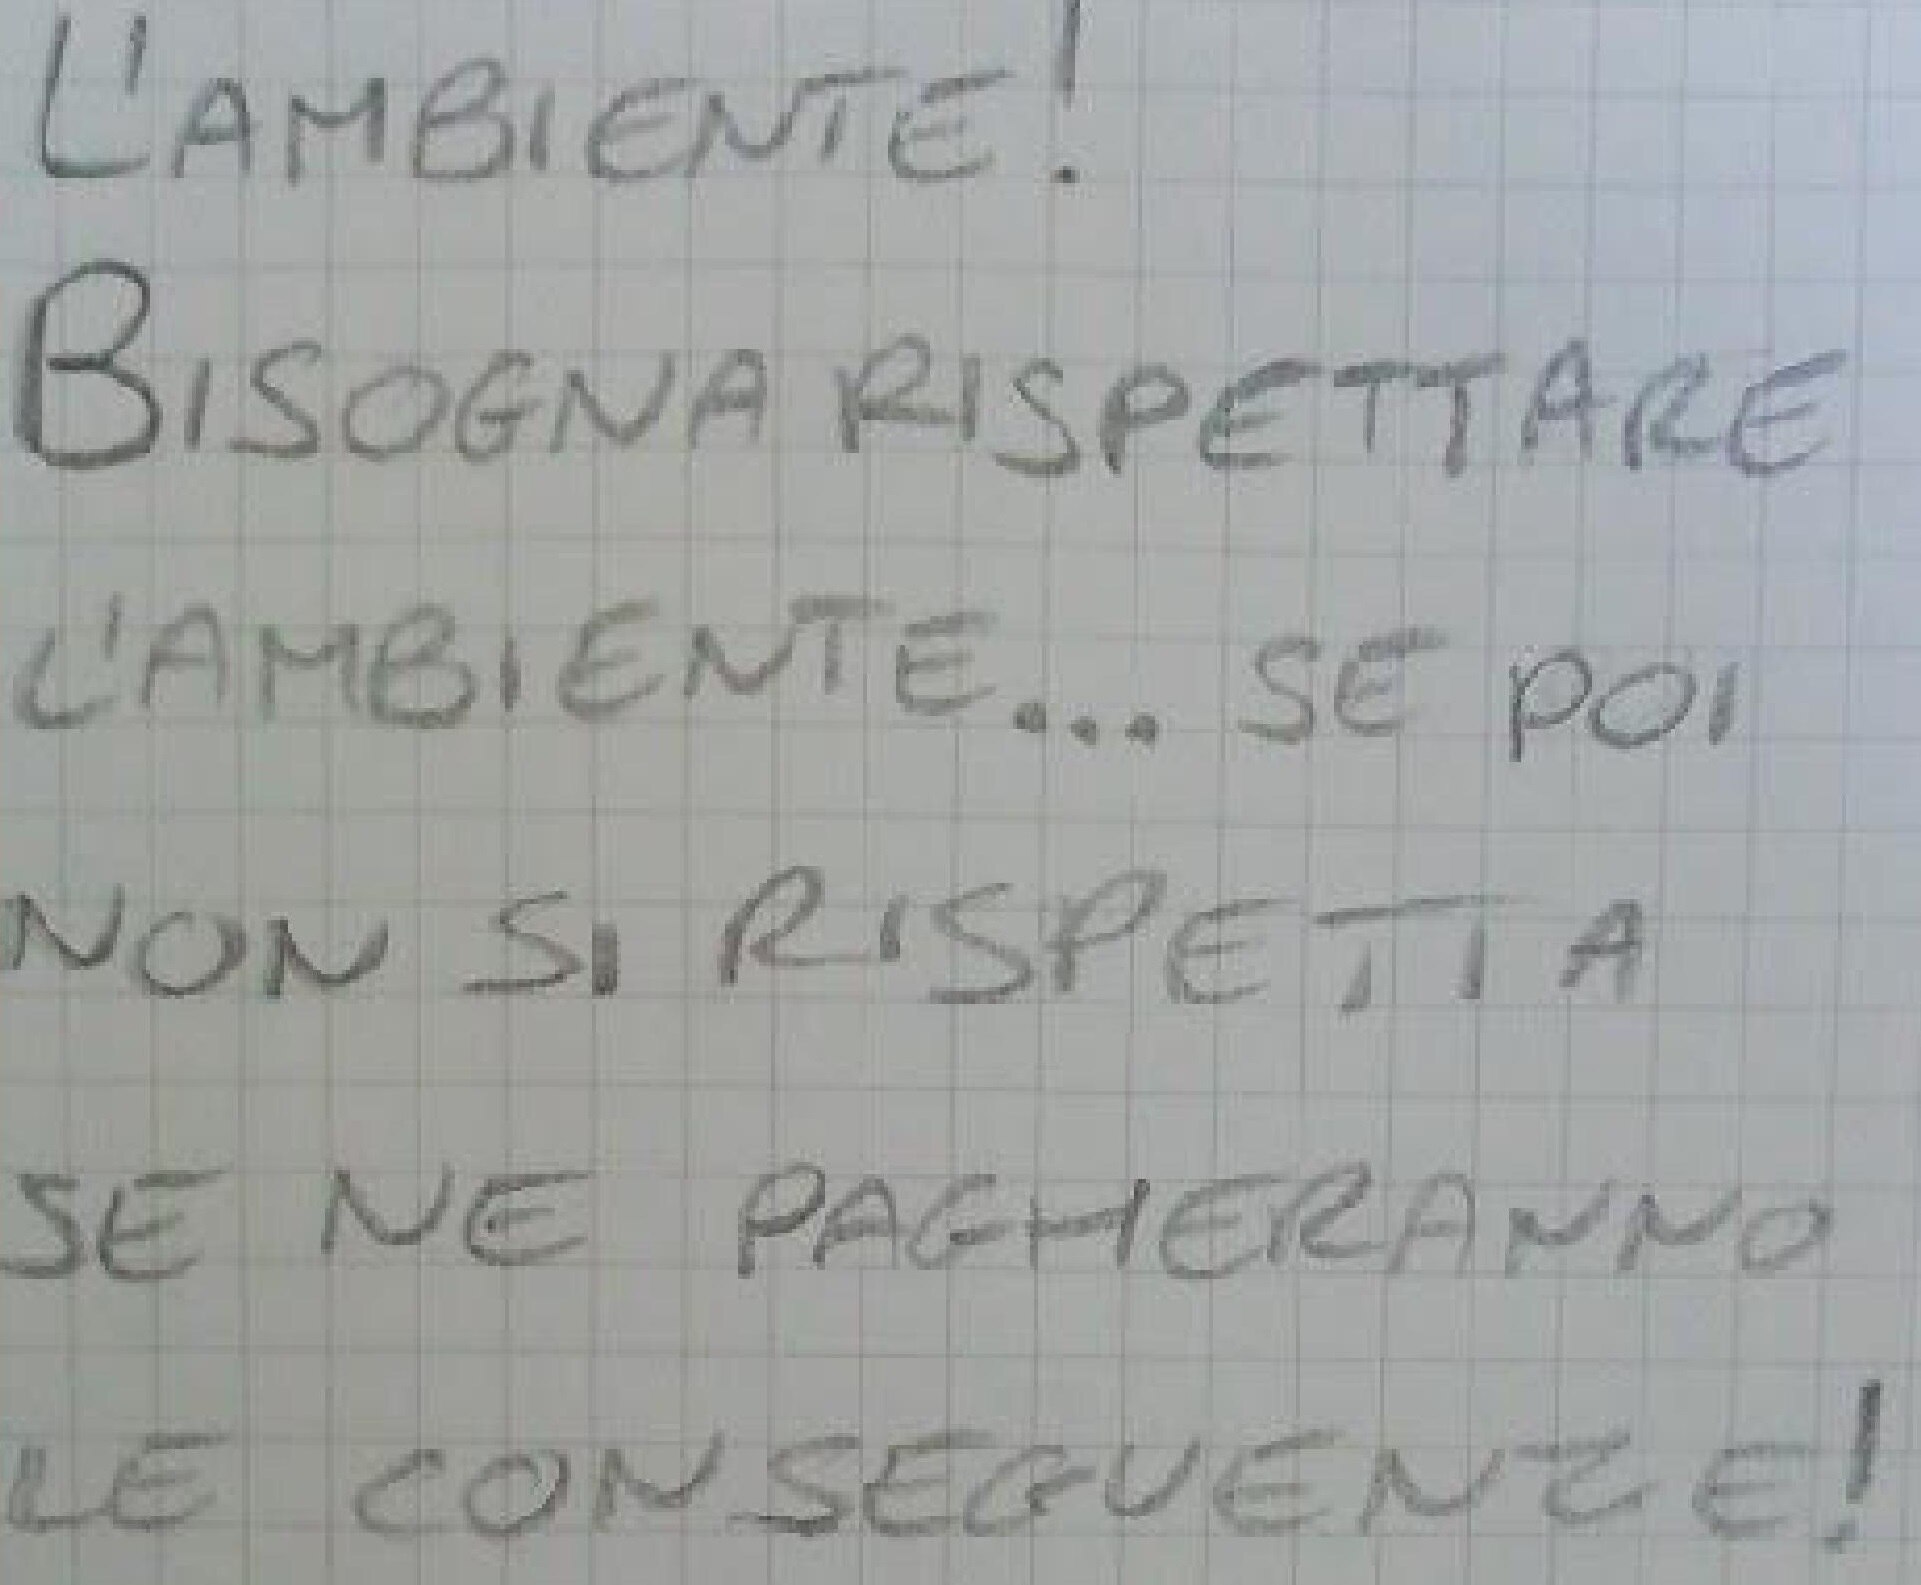 L'AMBIENTE!
BISOGNA RISPETTARE
L'AMBIENTE... SE POI
NON SI RISPETTA
SE NE PAGHERANNO
LE CONSEGUENZE!